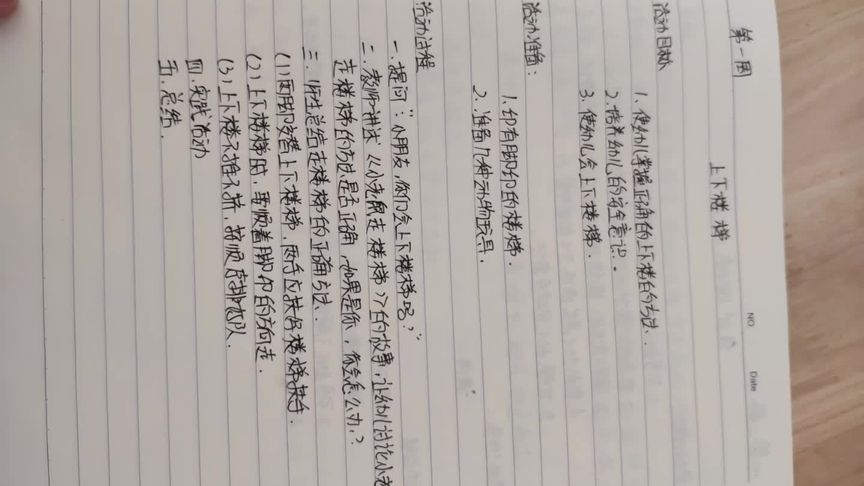 NO.
Date
第一周
上下楼梯
活动目标
1. 使幼儿掌握正确的上下楼的方法.
2. 培养幼儿的安全意识.
3. 使幼儿会上下楼梯.
活动准备:
1. 印有脚印的楼梯.
2. 准备几种动物玩具.
活动过程
一. 提问:"小朋友,你们会上下楼梯吗?"
二. 教师讲述《小老鼠走楼梯》的故事,让幼儿讨论小老
走楼梯的方法是否正确,如果是你,你会怎么办?
三. 师生总结走楼梯的正确方法.
(1) 两脚交替上下楼梯,两手应扶好楼梯扶手.
(2) 上下楼梯时,要顺着脚印的方向走.
(3) 上下楼不推不挤,按顺序排好队.
四. 实践活动
五. 总结.